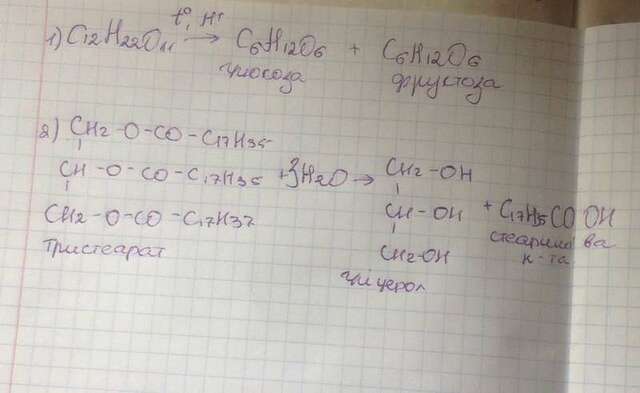 t°, H⁺
1) C₁₂H₂₂O₁₁ → C₆H₁₂O₆ + C₆H₁₂O₆
глюкоза фруктоза
2) CH₂ - O - CO - C₁₇H₃₅
CH - O - CO - C₁₇H₃₅ + 3H₂O → CH₂ - OH
CH₂ - O - CO - C₁₇H₃₇ CH - OH + C₁₇H₅COOH
тристеарат CH₂ - OH стеаринова
к-та
гліцерол